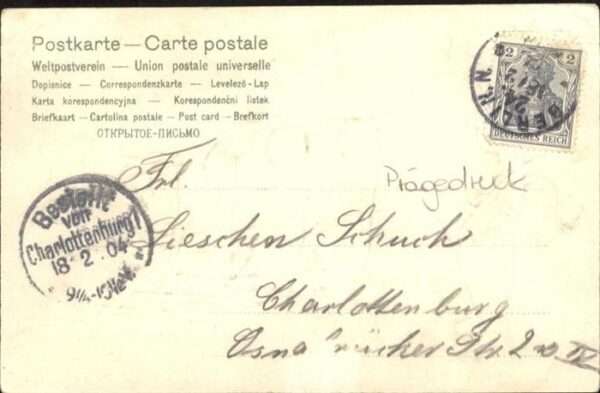 Postkarte — Carte postale
Weltpostverein — Union postale universelle
Dopisnice — Correspondenzkarte — Levelező-Lap
Karta korespondencyjna — Korespondenční listek
Briefkaart — Cartolina postale — Post card — Brefkort
ОТКРЫТОЕ-ПИСЬМО
2 2
DEUTSCHES REICH
BERLIN. N.
Frl.
Prägedruck
Bestellt
von
Charlottenburg 1
18 2 04
Lieschen Schuch
Charlottenburg
Osnabrücker Str. 2